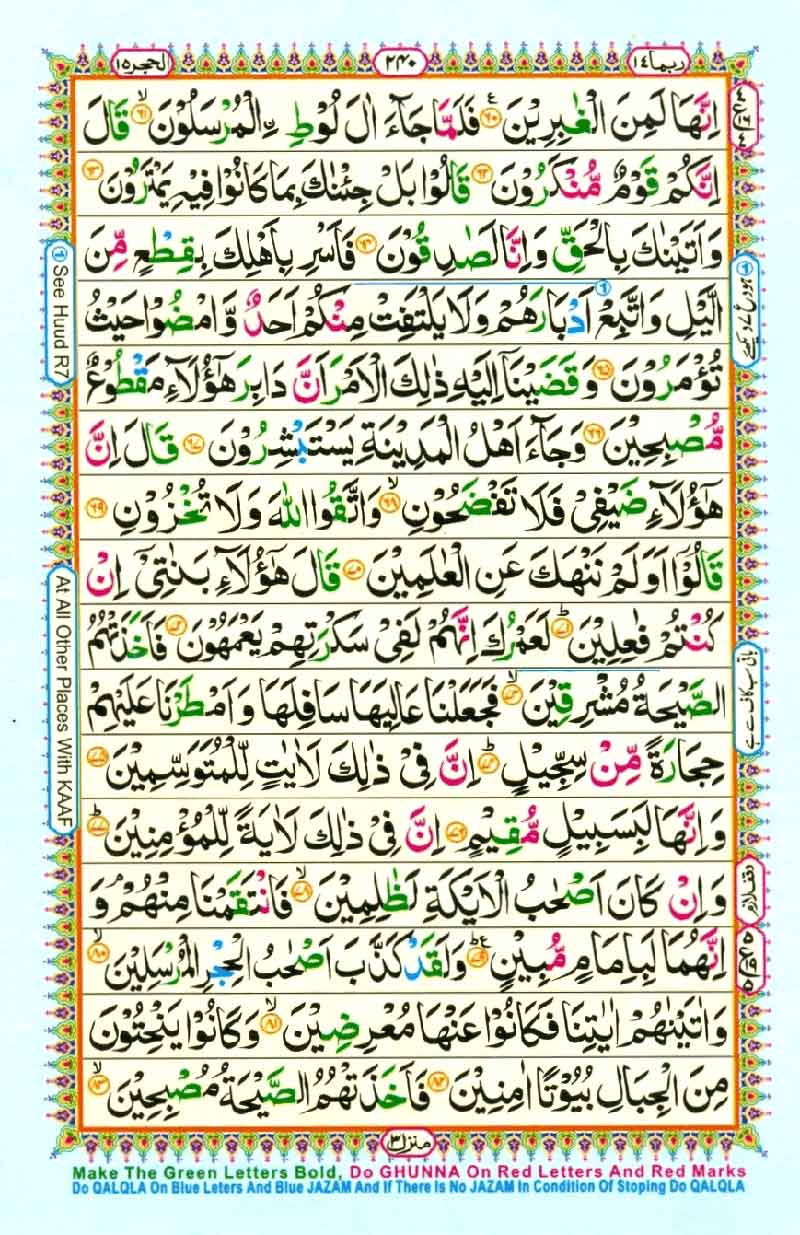 ربما ١٤
٢٤٠
الحجر ١٥
اِنَّهَا لَمِنَ الْغٰبِرِيْنَ ﴿٦٠﴾ فَلَمَّا جَآءَ اٰلَ لُوْطِ ۨالْمُرْسَلُوْنَ ﴿٦١﴾ قَالَ
اِنَّكُمْ قَوْمٌ مُّنْكَرُوْنَ ﴿٦٢﴾ قَالُوْا بَلْ جِئْنٰكَ بِمَا كَانُوْا فِيْهِ يَمْتَرُوْنَ ﴿٦٣﴾
وَاَتَيْنٰكَ بِالْحَقِّ وَاِنَّا لَصٰدِقُوْنَ ﴿٦٤﴾ فَاَسْرِ بِاَهْلِكَ بِقِطْعٍ مِّنَ
الَّيْلِ وَاتَّبِعْ اَدْبَارَهُمْ وَلَا يَلْتَفِتْ مِنْكُمْ اَحَدٌ وَّامْضُوْا حَيْثُ
تُؤْمَرُوْنَ ﴿٦٥﴾ وَقَضَيْنَاۤ اِلَيْهِ ذٰلِكَ الْاَمْرَ اَنَّ دَابِرَ هٰۤؤُلَآءِ مَقْطُوْعٌ
مُّصْبِحِيْنَ ﴿٦٦﴾ وَجَآءَ اَهْلُ الْمَدِيْنَةِ يَسْتَبْشِرُوْنَ ﴿٦٧﴾ قَالَ اِنَّ
هٰۤؤُلَآءِ ضَيْفِيْ فَلَا تَفْضَحُوْنِ ﴿٦٨﴾ وَاتَّقُوا اللّٰهَ وَلَا تُخْزُوْنِ ﴿٦٩﴾
قَالُوْۤا اَوَلَمْ نَنْهَكَ عَنِ الْعٰلَمِيْنَ ﴿٧٠﴾ قَالَ هٰۤؤُلَآءِ بَنٰتِيْۤ اِنْ
كُنْتُمْ فٰعِلِيْنَ ﴿٧١﴾ لَعَمْرُكَ اِنَّهُمْ لَفِيْ سَكْرَتِهِمْ يَعْمَهُوْنَ ﴿٧٢﴾ فَاَخَذَتْهُمُ
الصَّيْحَةُ مُشْرِقِيْنَ ﴿٧٣﴾ فَجَعَلْنَا عَالِيَهَا سَافِلَهَا وَاَمْطَرْنَا عَلَيْهِمْ
حِجَارَةً مِّنْ سِجِّيْلٍ ﴿٧٤﴾ اِنَّ فِيْ ذٰلِكَ لَاٰيٰتٍ لِّلْمُتَوَسِّمِيْنَ ﴿٧٥﴾
وَاِنَّهَا لَبِسَبِيْلٍ مُّقِيْمٍ ﴿٧٦﴾ اِنَّ فِيْ ذٰلِكَ لَاٰيَةً لِّلْمُؤْمِنِيْنَ ﴿٧٧﴾
وَاِنْ كَانَ اَصْحٰبُ الْاَيْكَةِ لَظٰلِمِيْنَ ﴿٧٨﴾ فَانْتَقَمْنَا مِنْهُمْ وَ
اِنَّهُمَا لَبِاِمَامٍ مُّبِيْنٍ ﴿٧٩﴾ وَلَقَدْ كَذَّبَ اَصْحٰبُ الْحِجْرِ الْمُرْسَلِيْنَ ﴿٨٠﴾
وَاٰتَيْنٰهُمْ اٰيٰتِنَا فَكَانُوْا عَنْهَا مُعْرِضِيْنَ ﴿٨١﴾ وَكَانُوْا يَنْحِتُوْنَ
مِنَ الْجِبَالِ بُيُوْتًا اٰمِنِيْنَ ﴿٨٢﴾ فَاَخَذَتْهُمُ الصَّيْحَةُ مُصْبِحِيْنَ ﴿٨٣﴾
وقف لازم
① See Huud R7
At All Other Places With KAAF
منزل ٣
Make The Green Letters Bold, Do GHUNNA On Red Letters And Red Marks
Do QALQLA On Blue Leters And Blue JAZAM And If There Is No JAZAM In Condition Of Stoping Do QALQLA